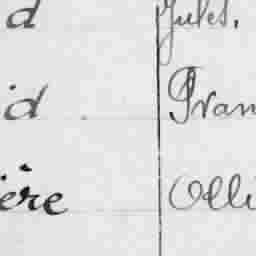 d Jules,
id Fran
ière Olli